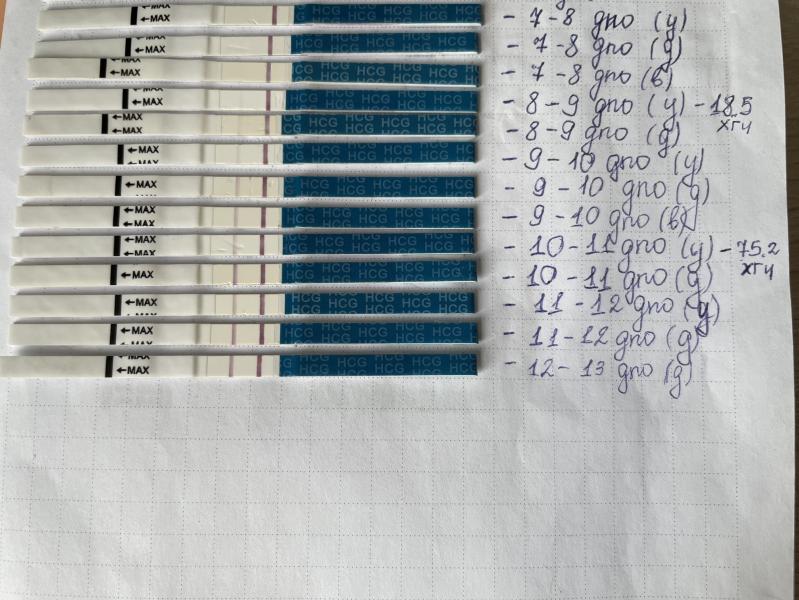 ←MAX HCG HCG HCG HCG - 7-8 дпо (у)
←MAX HCG HCG HCG HCG - 7-8 дпо (д)
←MAX HCG HCG HCG HCG - 7-8 дпо (в)
←MAX HCG HCG HCG HCG - 8-9 дпо (у) - 18.5
хгч
←MAX HCG HCG HCG HCG - 8-9 дпо (д)
←MAX HCG HCG HCG HCG - 9-10 дпо (у)
←MAX HCG HCG HCG HCG - 9-10 дпо (д)
←MAX HCG HCG HCG HCG - 9-10 дпо (в)
←MAX HCG HCG HCG HCG - 10-11 дпо (у) - 75.2
хгч
←MAX HCG HCG HCG HCG - 10-11 дпо (д)
←MAX HCG HCG HCG HCG - 11-12 дпо (у)
←MAX HCG HCG HCG HCG - 11-12 дпо (д)
←MAX HCG HCG HCG HCG - 12-13 дпо (д)